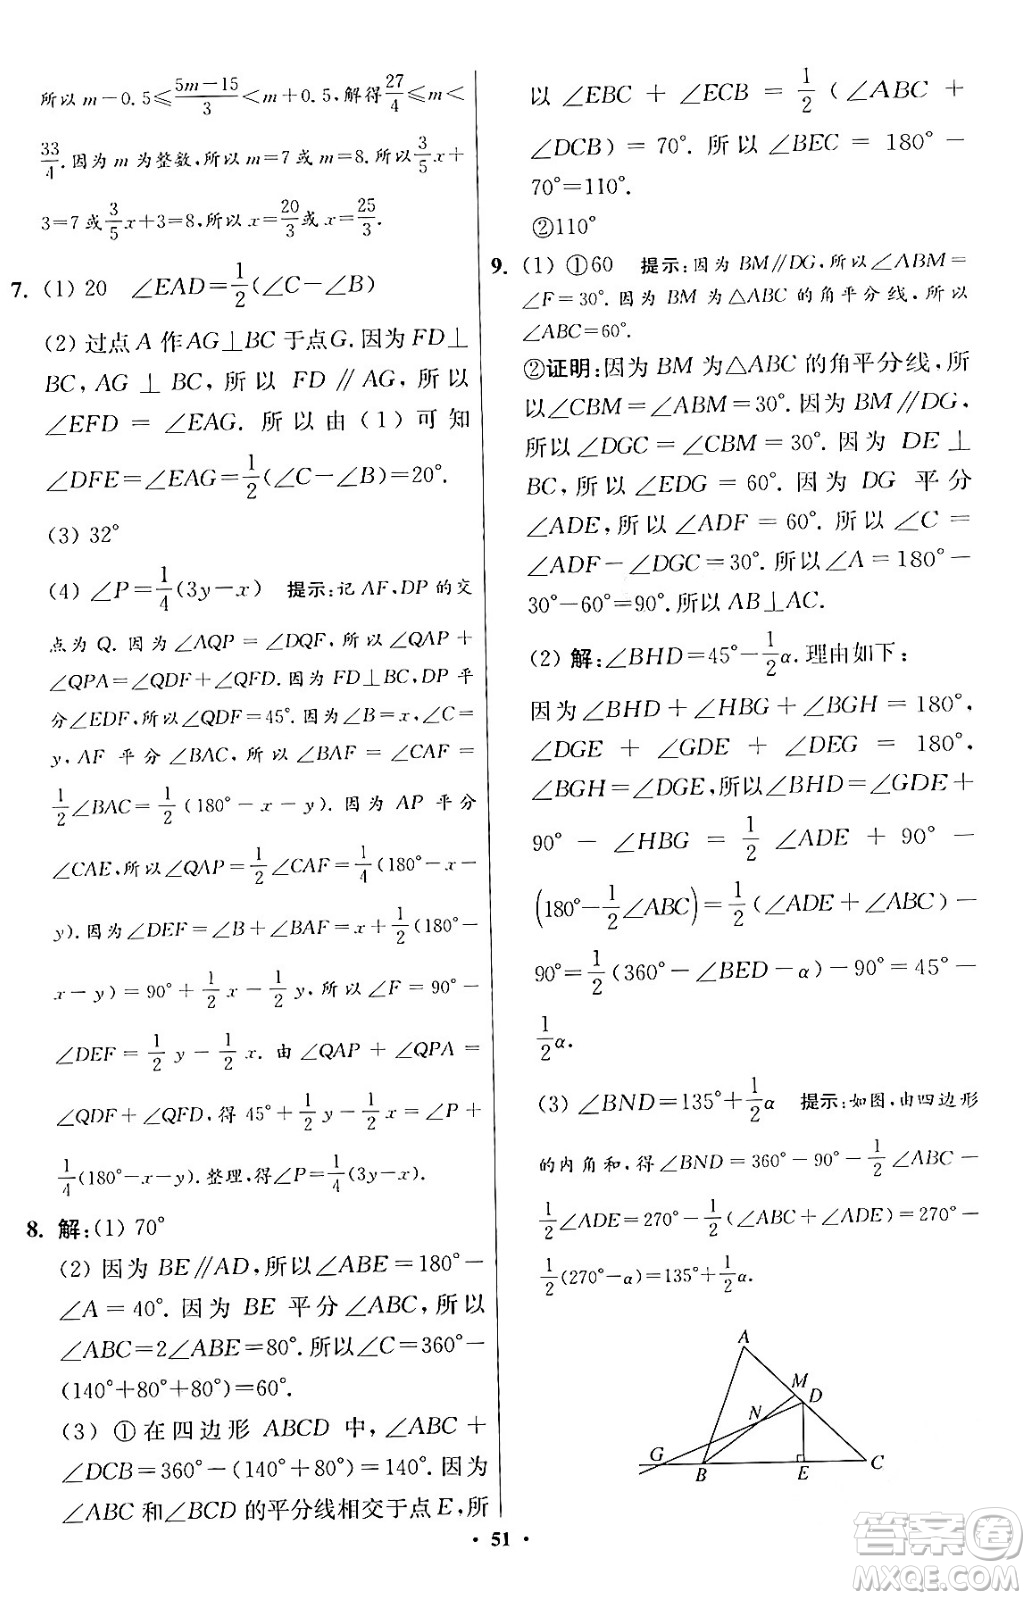 所以 m－0.5≤(5m－15)/3＜m＋0.5,解得27/4≤m＜
33/4.因为 m 为整数,所以 m＝7 或 m＝8.所以3/5x＋
3＝7 或3/5x＋3＝8,所以 x＝20/3或 x＝25/3.
7. (1) 20　∠EAD＝1/2(∠C－∠B)
(2) 过点 A 作 AG⊥BC 于点G.因为 FD⊥
BC,AG ⊥ BC, 所以 FD // AG, 所以
∠EFD ＝ ∠EAG. 所以由 (1) 可知
∠DFE＝∠EAG＝1/2(∠C－∠B)＝20°.
(3) 32°
(4) ∠P＝1/4(3y－x)　提示:记 AF,DP 的交
点为 Q. 因为∠AQP＝∠DQF, 所以∠QAP＋
∠QPA＝∠QDF＋∠QFD.因为FD⊥BC,DP 平
分∠EDF,所以∠QDF＝45°.因为∠B＝x,∠C＝
y,AF 平分∠BAC, 所以∠BAF＝∠CAF＝
1/2∠BAC＝1/2(180°－x－y).因为 AP 平分
∠CAE,所以∠QAP＝1/2∠CAF＝1/4(180°－x－
y).因为∠DEF＝∠B＋∠BAF＝x＋1/2(180°－
x－y)＝90°＋1/2x－1/2y,所以∠F＝90°－
∠DEF＝1/2y－1/2x. 由 ∠QAP ＋ ∠QPA ＝
∠QDF＋∠QFD,得 45°＋1/2y－1/2x＝∠P＋
1/4(180°－x－y).整理,得∠P＝1/4(3y－x).
8. 解:(1) 70°
(2) 因为 BE//AD,所以∠ABE＝180°－
∠A＝40°.因为 BE 平分∠ABC,所以
∠ABC＝2∠ABE＝80°.所以∠C＝360°－
(140°＋80°＋80°)＝60°.
(3) ①在四边形 ABCD 中,∠ABC＋
∠DCB＝360°－(140°＋80°)＝140°.因为
∠ABC 和∠BCD 的平分线相交于点 E,所
以 ∠EBC ＋ ∠ECB ＝ 1/2(∠ABC ＋
∠DCB) ＝ 70°. 所以∠BEC ＝ 180° －
70°＝110°.
②110°
9. (1) ①60　提示:因为 BM//DG,所以∠ABM＝
∠F＝30°.因为 BM 为△ABC 的角平分线,所以
∠ABC＝60°.
②证明:因为 BM 为△ABC 的角平分线,所
以∠CBM＝∠ABM＝30°.因为 BM//DG,
所以∠DGC＝∠CBM＝30°.因为 DE⊥
BC,所以∠EDG＝60°.因为 DG 平分
∠ADE,所以∠ADF＝60°.所以∠C＝
∠ADF－∠DGC＝30°.所以∠A＝180°－
30°－60°＝90°.所以 AB⊥AC.
(2) 解:∠BHD＝45°－1/2α.理由如下:
因为∠BHD＋∠HBG＋∠BGH＝180°,
∠DGE ＋ ∠GDE ＋ ∠DEG ＝ 180°,
∠BGH＝∠DGE,所以∠BHD＝∠GDE＋
90° － ∠HBG ＝ 1/2∠ADE ＋ 90° －
(180°－1/2∠ABC)＝1/2(∠ADE＋∠ABC)－
90°＝1/2(360°－∠BED－α)－90°＝45°－
1/2α.
(3) ∠BND＝135°＋1/2α　提示:如图,由四边形
的内角和,得∠BND＝360°－90°－1/2∠ABC－
1/2∠ADE＝270°－1/2(∠ABC＋∠ADE)＝270°－
1/2(270°－α)＝135°＋1/2α.
A
M
D
N
G
B
E
C
• 51 •
答案卷
MXQE.COM